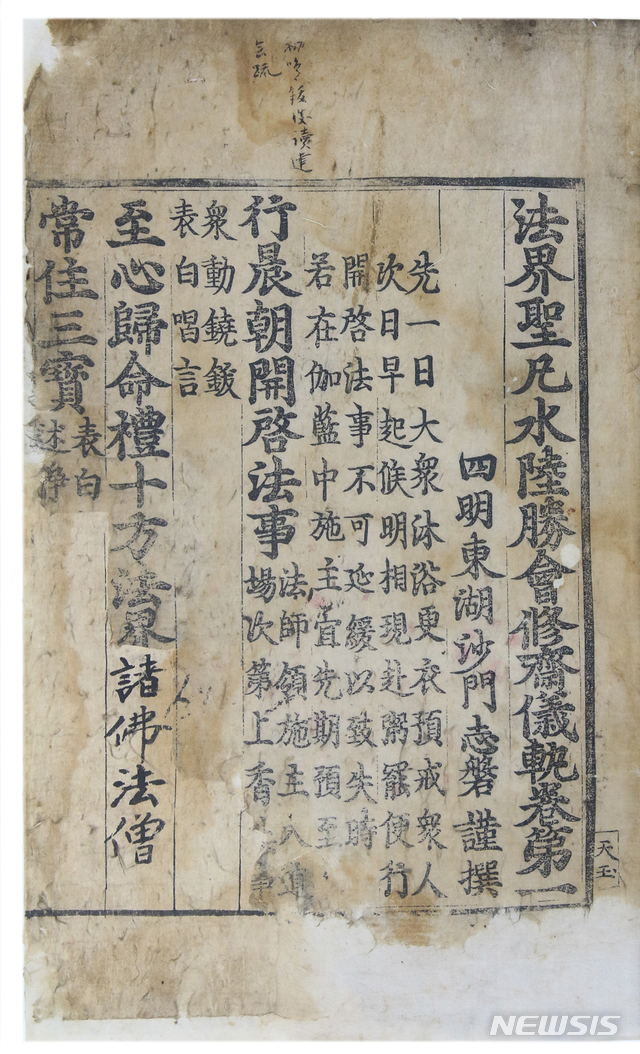 法界聖凡水陸勝會修齋儀軌卷第一
四明東湖沙門志磐謹撰
先一日大衆沐浴更衣預戒衆人
次日早起候明相現赴粥罷便行
開啓法事不可延緩以致失時
若在伽藍中施主宜先期預至
行晨朝開啓法事
法師領施主入道
場次第上香
衆動鐃鈸
表白唱言
至心歸命禮十方法界諸佛法僧
常住三寶
表白
述淨
鈸後讀建
疏
天
NEWSIS